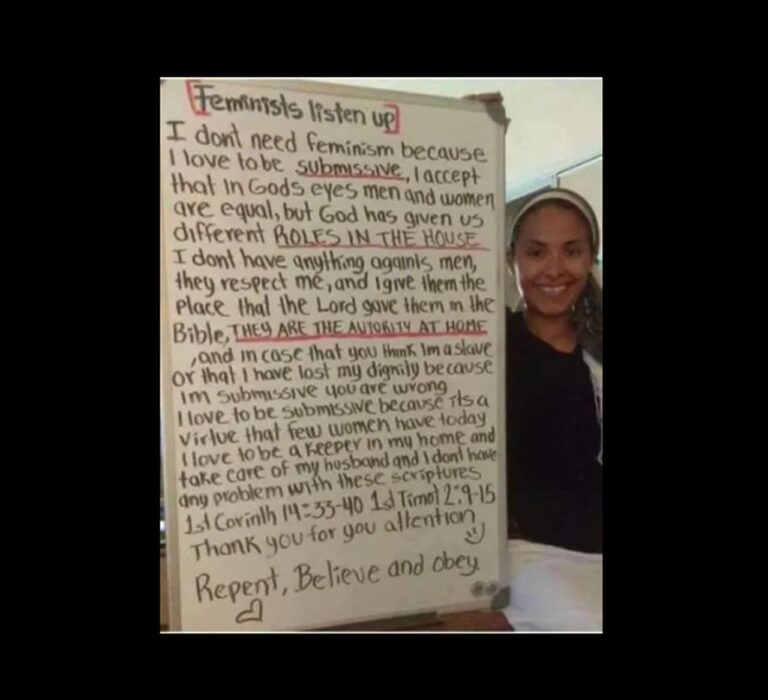 [Feminists listen up]
I dont need feminism because
I love to be submissive, I accept
that in Gods eyes men and women
are equal, but God has given us
different ROLES IN THE HOUSE
I dont have anything againts men,
they respect me, and I give them the
Place that the Lord gave them in the
Bible, THEY ARE THE AUTORITY AT HOME
, and in case that you think Im a slave
or that I have lost my dignity because
Im submissive you are wrong
I love to be submissive because its a
virtue that few women have today
I love to be a keeper in my home and
take care of my husband and I dont have
any problem with these scriptures
1st Corinth 14=33-40 1st Timot 2:9-15
Thank you for you attention
Repent, Believe and obey